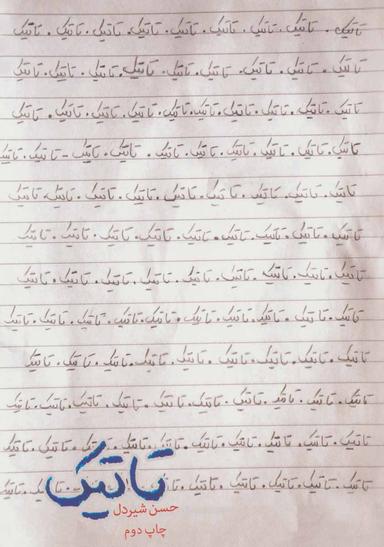 تاتیک . تاتیک . تاتیک . تاتیک . تاتیک . تاتیک . تاتیک . تاتیک . تاتیک
تاتیک . تاتیک . تاتیک . تاتیک . تاتیک . تاتیک . تاتیک . تاتیک . تاتیک
تاتیک . تاتیک . تاتیک . تاتیک . تاتیک . تاتیک . تاتیک . تاتیک . تاتیک . تاتیک
تاتیک . تاتیک . تاتیک . تاتیک . تاتیک . تاتیک . تاتیک . تاتیک – تاتیک . تاتیک
تاتیک . تاتیک . تاتیک . تاتیک . تاتیک . تاتیک . تاتیک . تاتیک . تاتیک
تاتیک . تاتیک . تاتیک . تاتیک . تاتیک . تاتیک . تاتیک . تاتیک . تاتیک
تاتیک . تاتیک . تاتیک . تاتیک . تاتیک . تاتیک . تاتیک . تاتیک . تاتیک
تاتیک . تاتیک . تاتیک . تاتیک . تاتیک . تاتیک . تاتیک . تاتیک . تاتیک . تاتیک
تاتیک . تاتیک . تاتیک . تاتیک . تاتیک . تاتیک . تاتیک . تاتیک . تاتیک
تاتیک . تاتیک . تاتیک . تاتیک . تاتیک . تاتیک . تاتیک . تاتیک . تاتیک . تاتیک
تاتیک . تاتیک . تاتیک . تاتیک . تاتیک . تاتیک . تاتیک . تاتیک . تاتیک . تاتیک
تاتیک . تاتیک . تاتیک . تاتیک . تاتیک
تاتیک
حسن شیردل
چاپ دوم